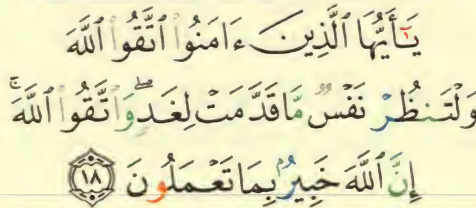 يَـٰٓأَيُّهَا ٱلَّذِينَ ءَامَنُوا۟ ٱتَّقُوا۟ ٱللَّهَ
وَلْتَنظُرْ نَفْسٌ مَّا قَدَّمَتْ لِغَدٍ ۖ وَٱتَّقُوا۟ ٱللَّهَ ۚ
إِنَّ ٱللَّهَ خَبِيرٌۢ بِمَا تَعْمَلُونَ ١٨